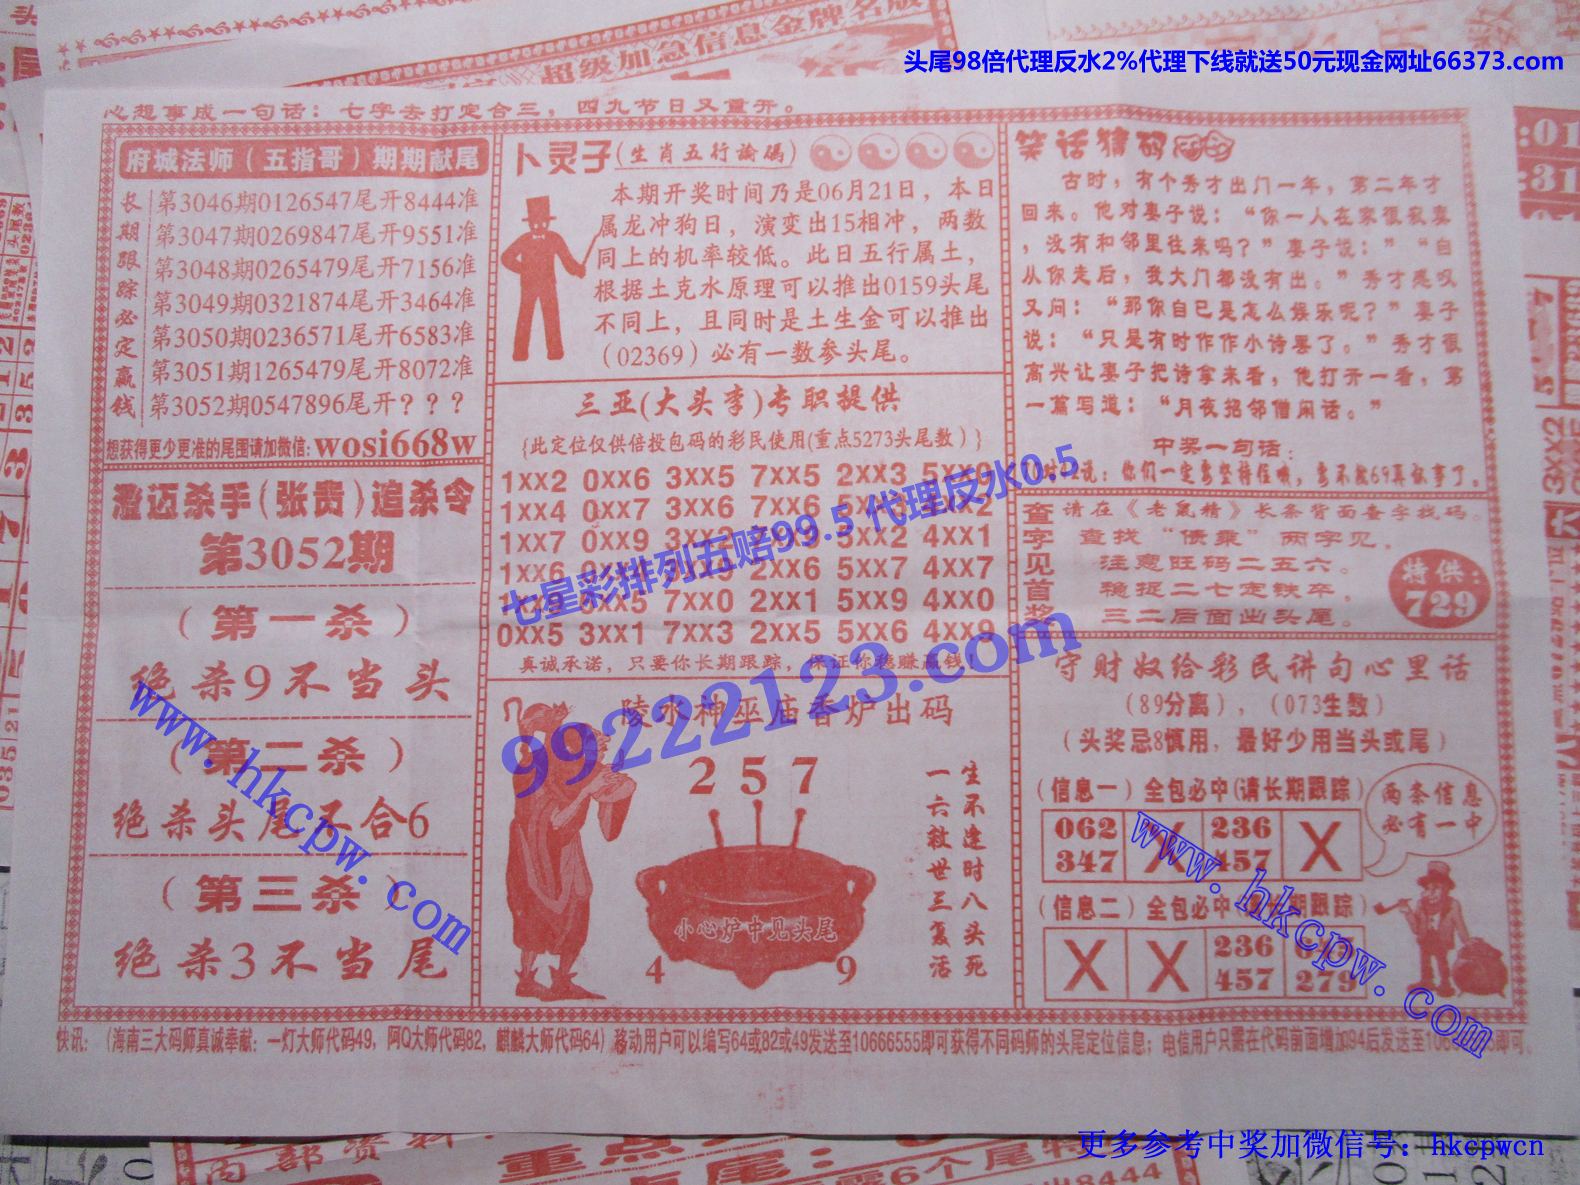 头尾98倍代理反水2%代理下线就送50元现金网址66373.com
超级加急信息金牌名版
心想事成一句话：七字去打定合三，四九节日又重开。
府城法师（五指哥）期期献尾
长期跟踪必定赢钱
第3046期0126547尾开8444准
第3047期0269847尾开9551准
第3048期0265479尾开7156准
第3049期0321874尾开3464准
第3050期0236571尾开6583准
第3051期1265479尾开8072准
第3052期0547896尾开？？？
想获得更少更准的尾围请加微信: wosi668w
澄迈杀手(张贵)追杀令
第3052期
（第一杀）
绝杀9不当头
（第二杀）
绝杀头尾不合6
（第三杀）
绝杀3不当尾
卜灵子(生肖五行論碼)
本期开奖时间乃是06月21日，本日
属龙冲狗日，演变出15相冲，两数
同上的机率较低。此日五行属土，
根据土克水原理可以推出0159头尾
不同上，且同时是土生金可以推出
（02369）必有一数参头尾。
三亚(大头李)专职提供
{此定位仅供倍投包码的彩民使用(重点5273头尾数)}
1xx2 0xx6 3xx5 7xx5 2xx3 5xx9
1xx4 0xx7 3xx6 7xx6
1xx7 0xx9 3xx2 5xx2 4xx1
1xx6 2xx6 5xx7 4xx7
1xx9 7xx0 2xx1 5xx9 4xx0
0xx5 3xx1 7xx3 2xx5 5xx6 4xx9
真诚承诺，只要你长期跟踪，保证你稳赚赢钱！
陵水神巫庙香炉出码
2 5 7
一六救世三复活
生不逢时八头死
小心炉中见头尾
4 9
笑话猜码
古时，有个秀才出门一年，第二年才
回来。他对妻子说：“你一人在家很寂寞
，没有和邻里往来吗？”妻子说：”“自
从你走后，我大门都没有出。”秀才感叹
又问：“那你自已是怎么娱乐呢？”妻子
说：“只是有时作作小诗罢了。”秀才很
高兴让妻子把诗拿来看，他打开一看，第
一篇写道：“月夜招邻僧闲话。”
中奖一句话：
查字见首奖
请在《老鼠精》长条背面查字找码。
查找“债乘”两字见。
注意旺码二五六。
稳捉二七定铁卒。
三二后面出头尾。
特供：
729
守财奴给彩民讲句心里话
（89分离），（073生数）
（头奖忌8慎用，最好少用当头或尾）
（信息一）全包必中(请长期跟踪)
062 X 236 X
347 457
两条信息
必有一中
（信息二）全包必中 期跟踪）
X X 236
457 279
快讯：（海南三大码师真诚奉献：一灯大师代码49，阿Q大师代码82，麒麟大师代码64）移动用户可以编写64或82或49发送至10666555即可获得不同码师的头尾定位信息；电信用户只需在代码前面增加94后发送至10666555即可。
七星彩排列五赔99.5 代理反水0.5
99222123.com
www.hkcpw.com
www.hkcpw.com
更多参考中奖加微信号：hkcpwcn